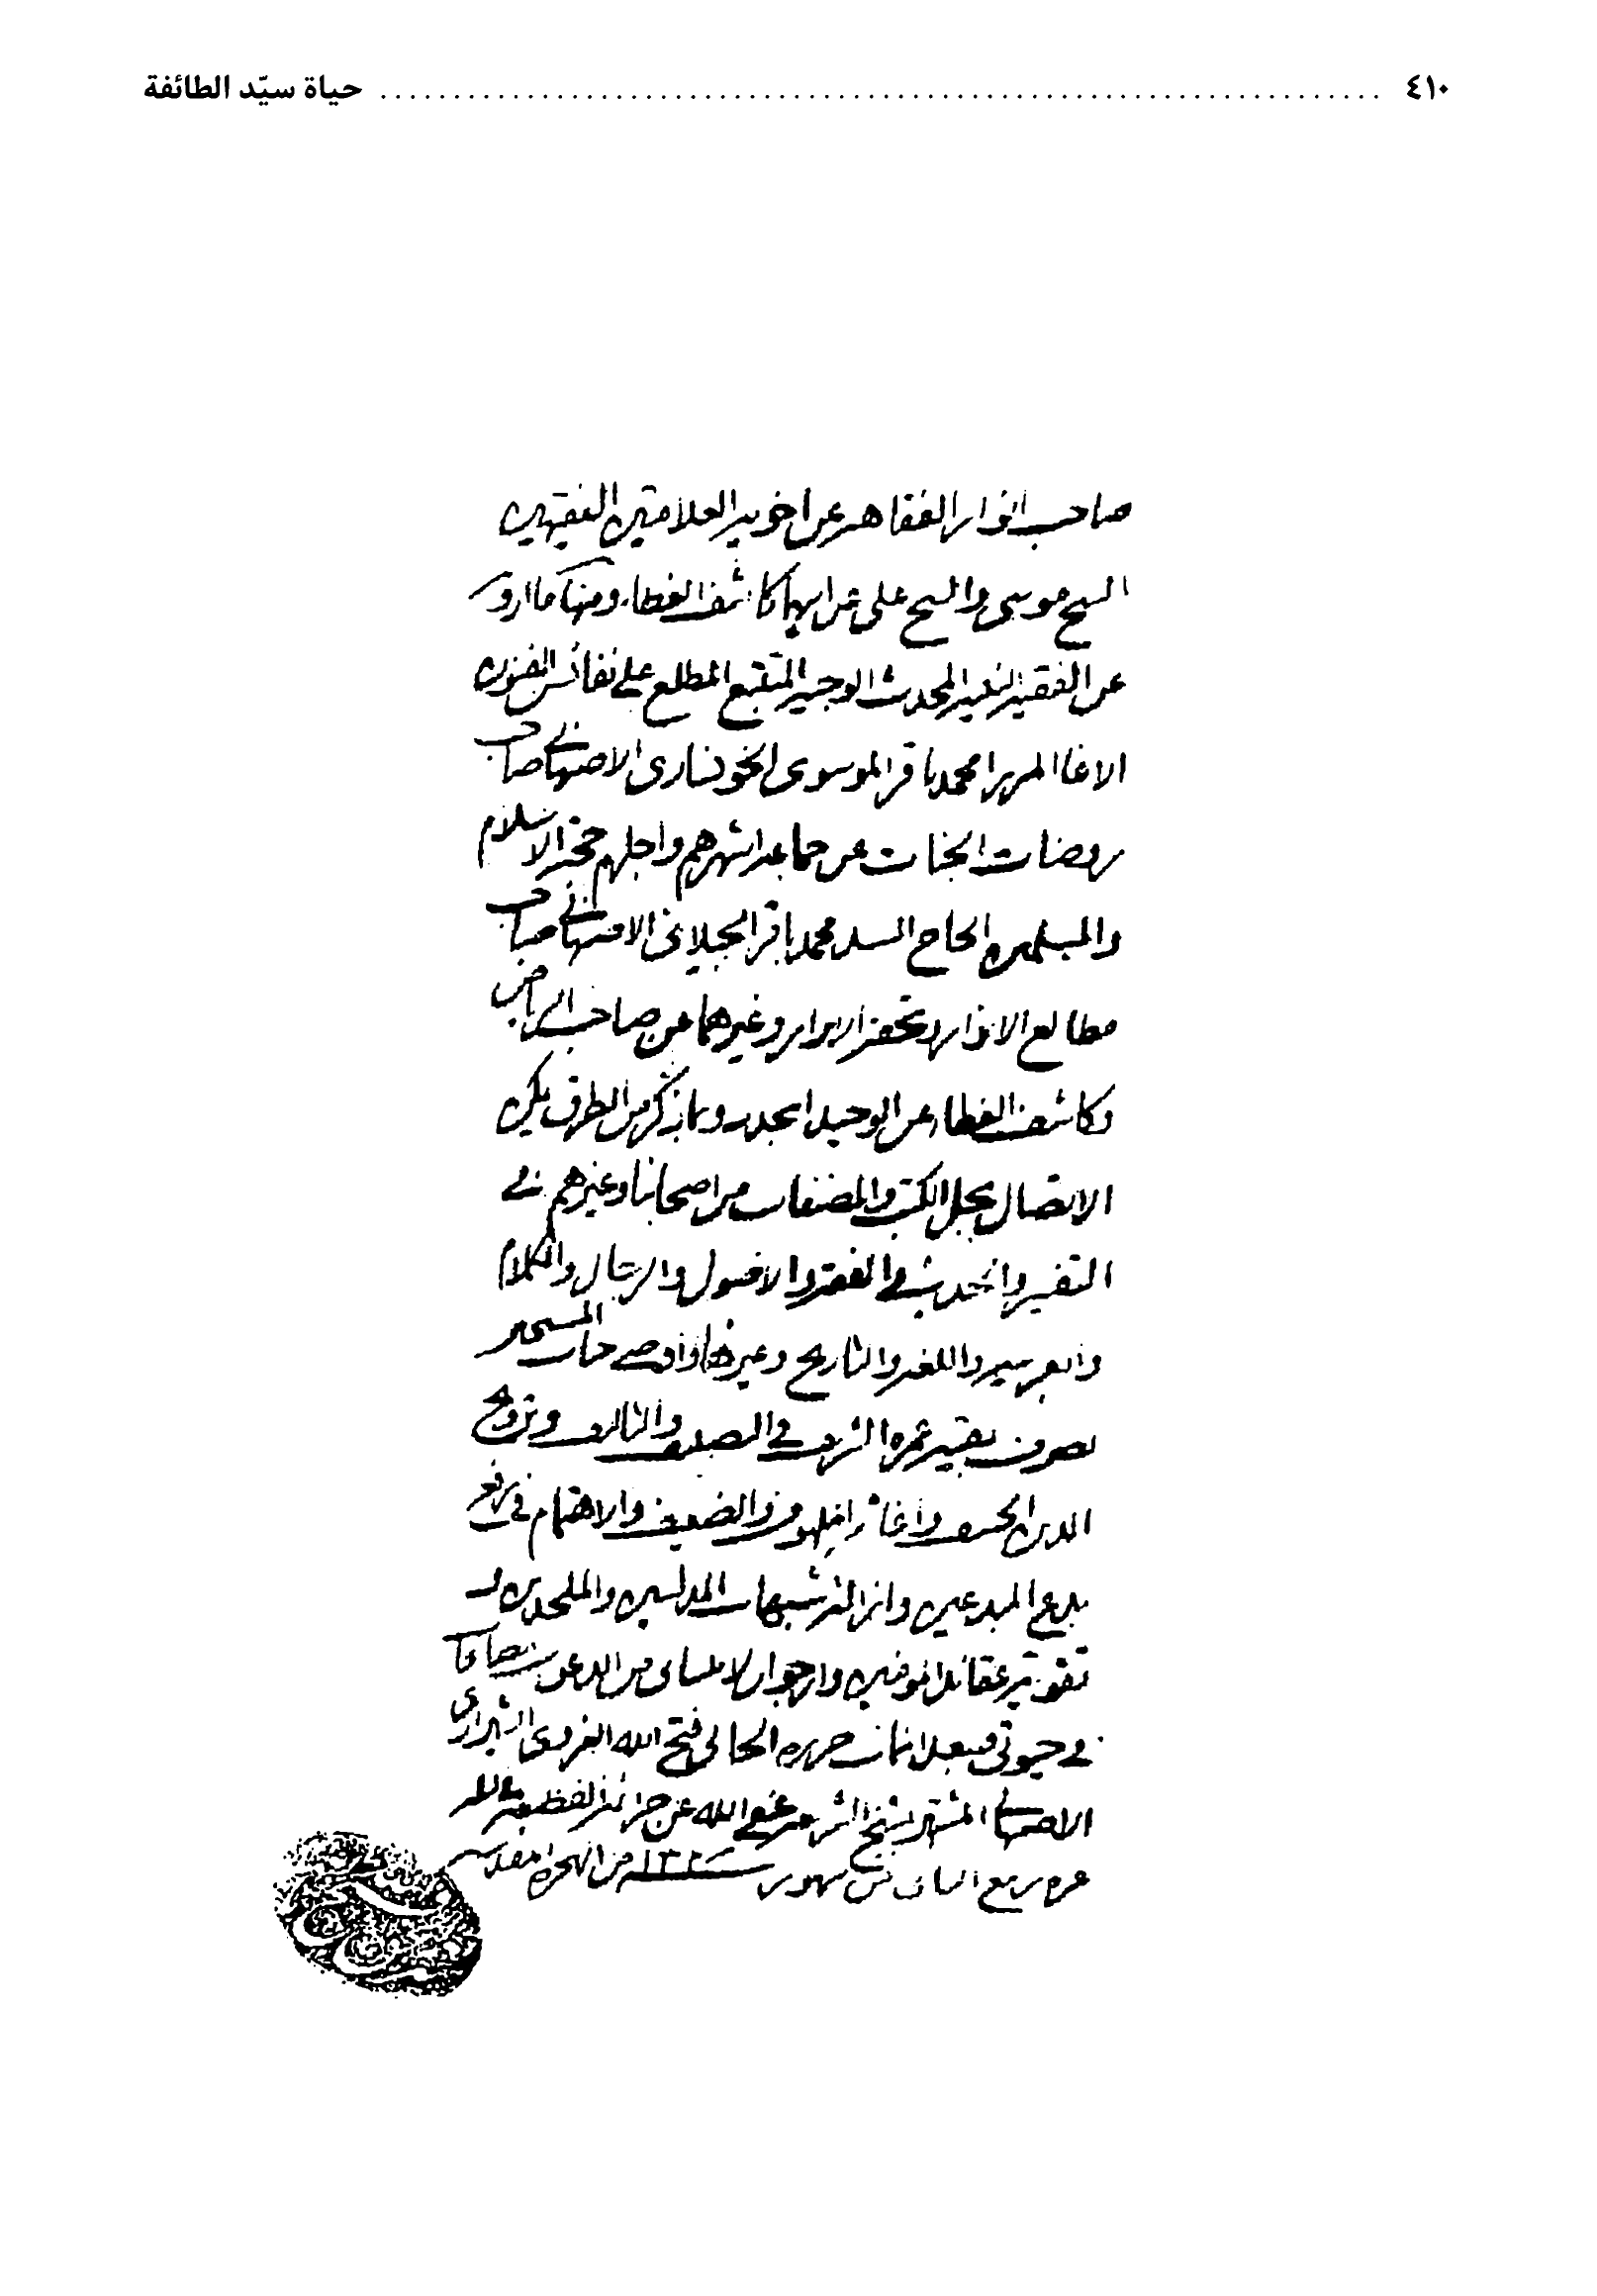 ٤١٠ ........ حياة سيّد الطائفة
صاحب انوار الفقاهة عن اخويه العلامتين الفقيهين
الشيخ موسى والشيخ على عن ابيهما كاشف الغطاء ومنها ما اروى
عن الفقيه النبيه المحدث الوجيه المتتبع المطلع على نفائس الفنون
الاغا الميرزا محمد باقر الموسوى الخونسارى الاصبهانى صاحب
روضات الجنات عن جماعة اشهرهم واجلهم حجة الاسلام
والمسلمين الحاج السيد محمد باقر الجيلانى الاصبهانى صاحب
مطالع الانوار وتحفة الابرار وغيرهما عن صاحب الرياض
وكاشف الغطاء عن الوحيد المجدد وبما ذكر من الطرق يمكن
الاتصال بجل الكتب والمصنفات من اصحابنا وغيرهم فى
التفسير والحديث والفقه والاصول والرجال والكلام
والعربية واللغة والتاريخ وغيرها واوصى جناب المستجيز
بصرف بقية عمره الشريف فى التصنيف والتاليف وترويج
الدين الحنيف واغاثة الملهوف والضعيف والاهتمام فى رفع
بدع المبدعين وازالة شبهات المدلسين والملحدين و
تقوية عقائد المؤمنين وارجو ان لا ينسانى من الدعوات
فى حيوتى وبعد الممات حرره الجانى فتح الله الغروى الشيرازى
الاصبهانى المشتهر بشيخ الشريعة عفى الله عن جرائمه الفظيعة
غرة ربيع الثانى من شهور من الهجرة المقدسة